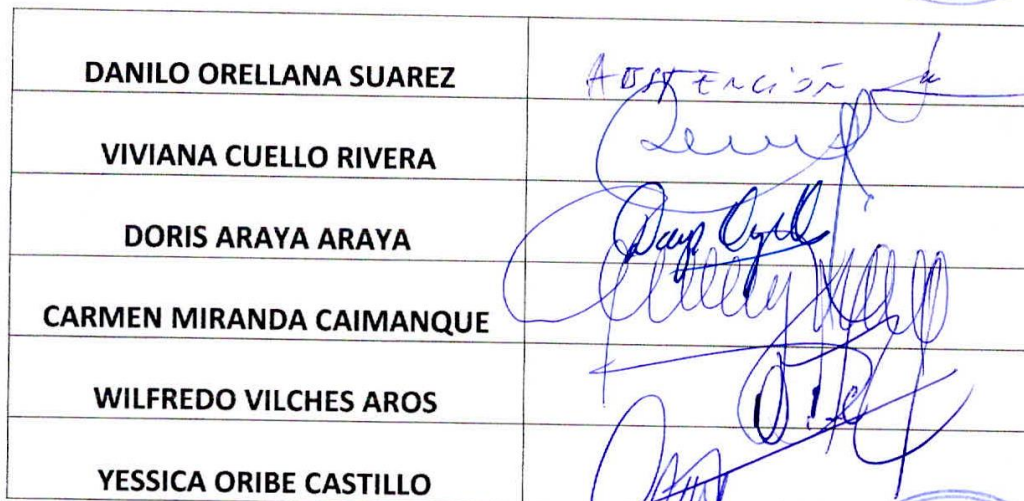 DANILO ORELLANA SUAREZ
ABSTENCIÓN
VIVIANA CUELLO RIVERA
DORIS ARAYA ARAYA
CARMEN MIRANDA CAIMANQUE
WILFREDO VILCHES AROS
YESSICA ORIBE CASTILLO